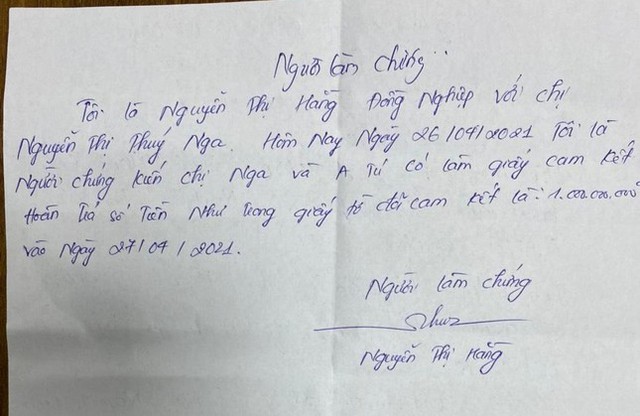 Người làm chứng
Tôi là Nguyễn Thị Hằng Đồng Nghiệp với chị
Nguyễn Thị Thuý Nga. Hôm Nay Ngày 26/04/2021 Tôi là
Người chứng kiến chị Nga và A Tú có làm giấy cam kết
Hoàn Trả số Tiền Như trong giấy tờ đã cam kết là: 1.000.000.000đ
vào Ngày 27/04/2021.
Người làm chứng
Nguyễn Thị Hằng